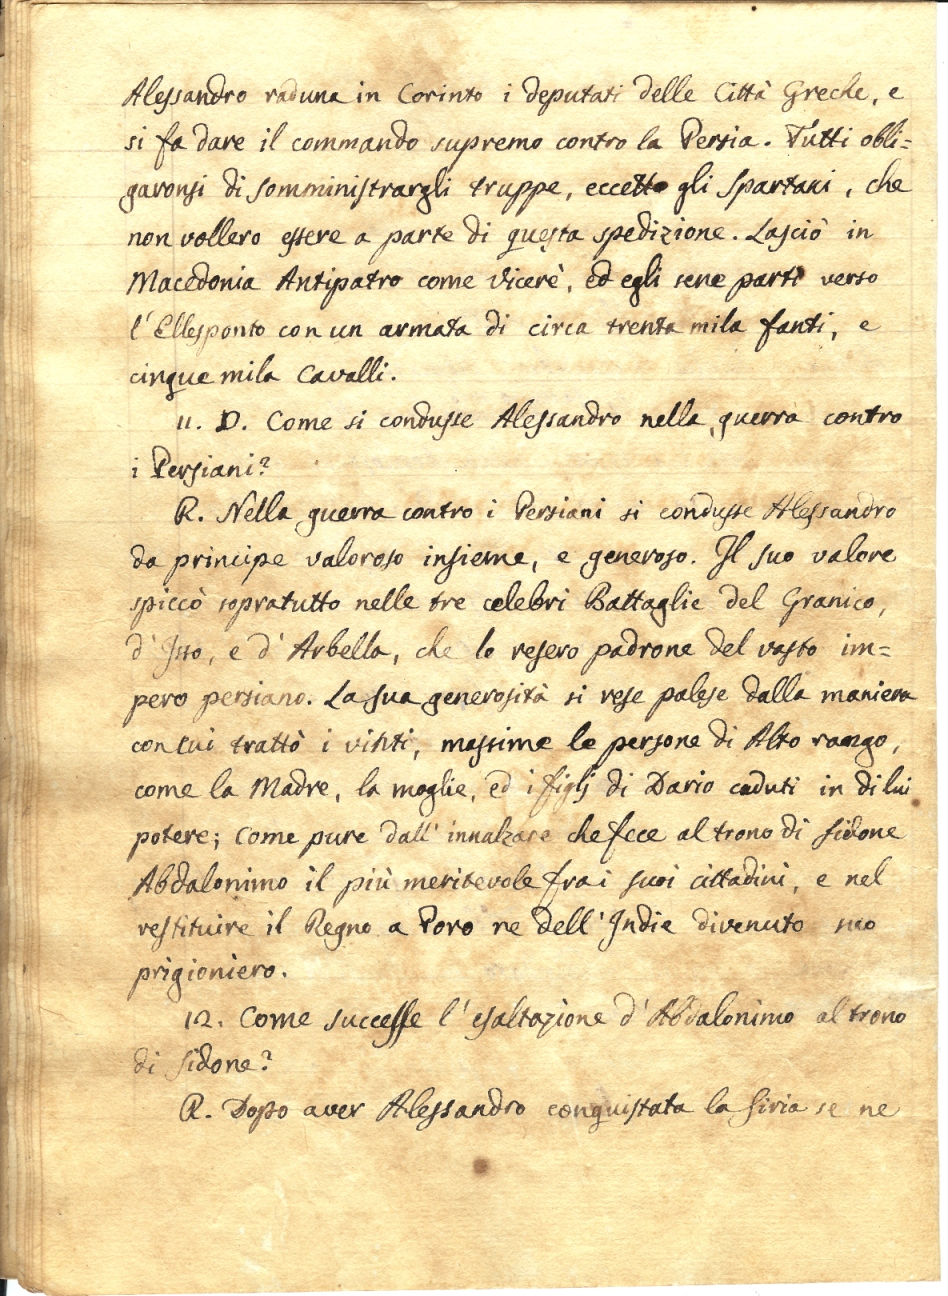 Alessandro raduna in Corinto i deputati delle Città Greche, e
si fa dare il commando supremo contro la Persia. Tutti obli=
garonsi di somministrargli truppe, eccetto gli Spartani, che
non vollero essere a parte di questa spedizione. Lasciò in
Macedonia Antipatro come Vicerè, ed egli sene partì verso
l'Ellesponto con un armata di circa trenta mila fanti, e
cinque mila Cavalli.
11. D. Come si condusse Alessandro nella guerra contro
i Persiani?
R. Nella guerra contro i Persiani si condusse Alessandro
da principe valoroso insieme, e generoso. Il suo valore
spiccò sopratutto nelle tre celebri Battaglie del Granico,
d'Isso, e d'Arbella, che lo resero padrone del vasto im=
pero persiano. La sua generosità si rese palese dalla maniera
con cui trattò i vinti, massime le persone di Alto rango,
come la Madre, la moglie, ed i figlj di Dario caduti in di lui
potere; Come pure dall'innalzare che fece al trono di Sidone
Abdalonimo il più meritevole fra i suoi cittadini, e nel
restituire il Regno a Poro re dell'Indie divenuto suo
prigioniero.
12. Come successe l'esaltazione d'Abdalonimo al trono
di Sidone?
R. Dopo aver Alessandro conquistata la Siria se ne